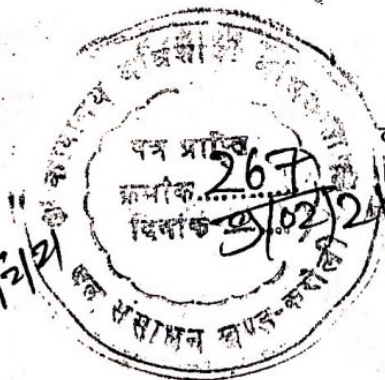 कार्यालय अधिशाषी अभियन्ता
पत्र प्राप्ति
क्रमांक 267
दिनांक 9/02/21
जल संसाधन खण्ड-करौली